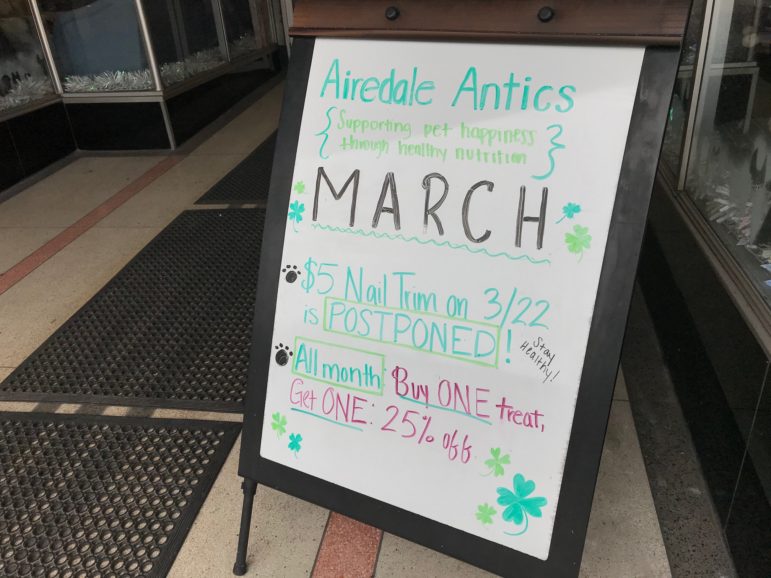 Airedale Antics
{Supporting pet happiness
through healthy nutrition}
MARCH
$5 Nail Trim on 3/22
is POSTPONED!
Stay
Healthy!
All month Buy ONE treat,
Get ONE: 25% off